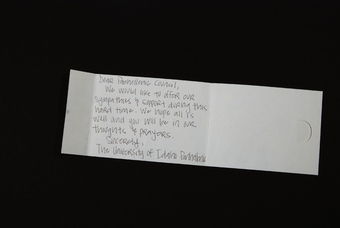 Dear Panhellenic Council,
We would like to offer our
sympathies & support during this
hard time. We hope all is
well and you will be in our
thoughts & prayers.
Sincerely,
The University of Idaho Panhellenic